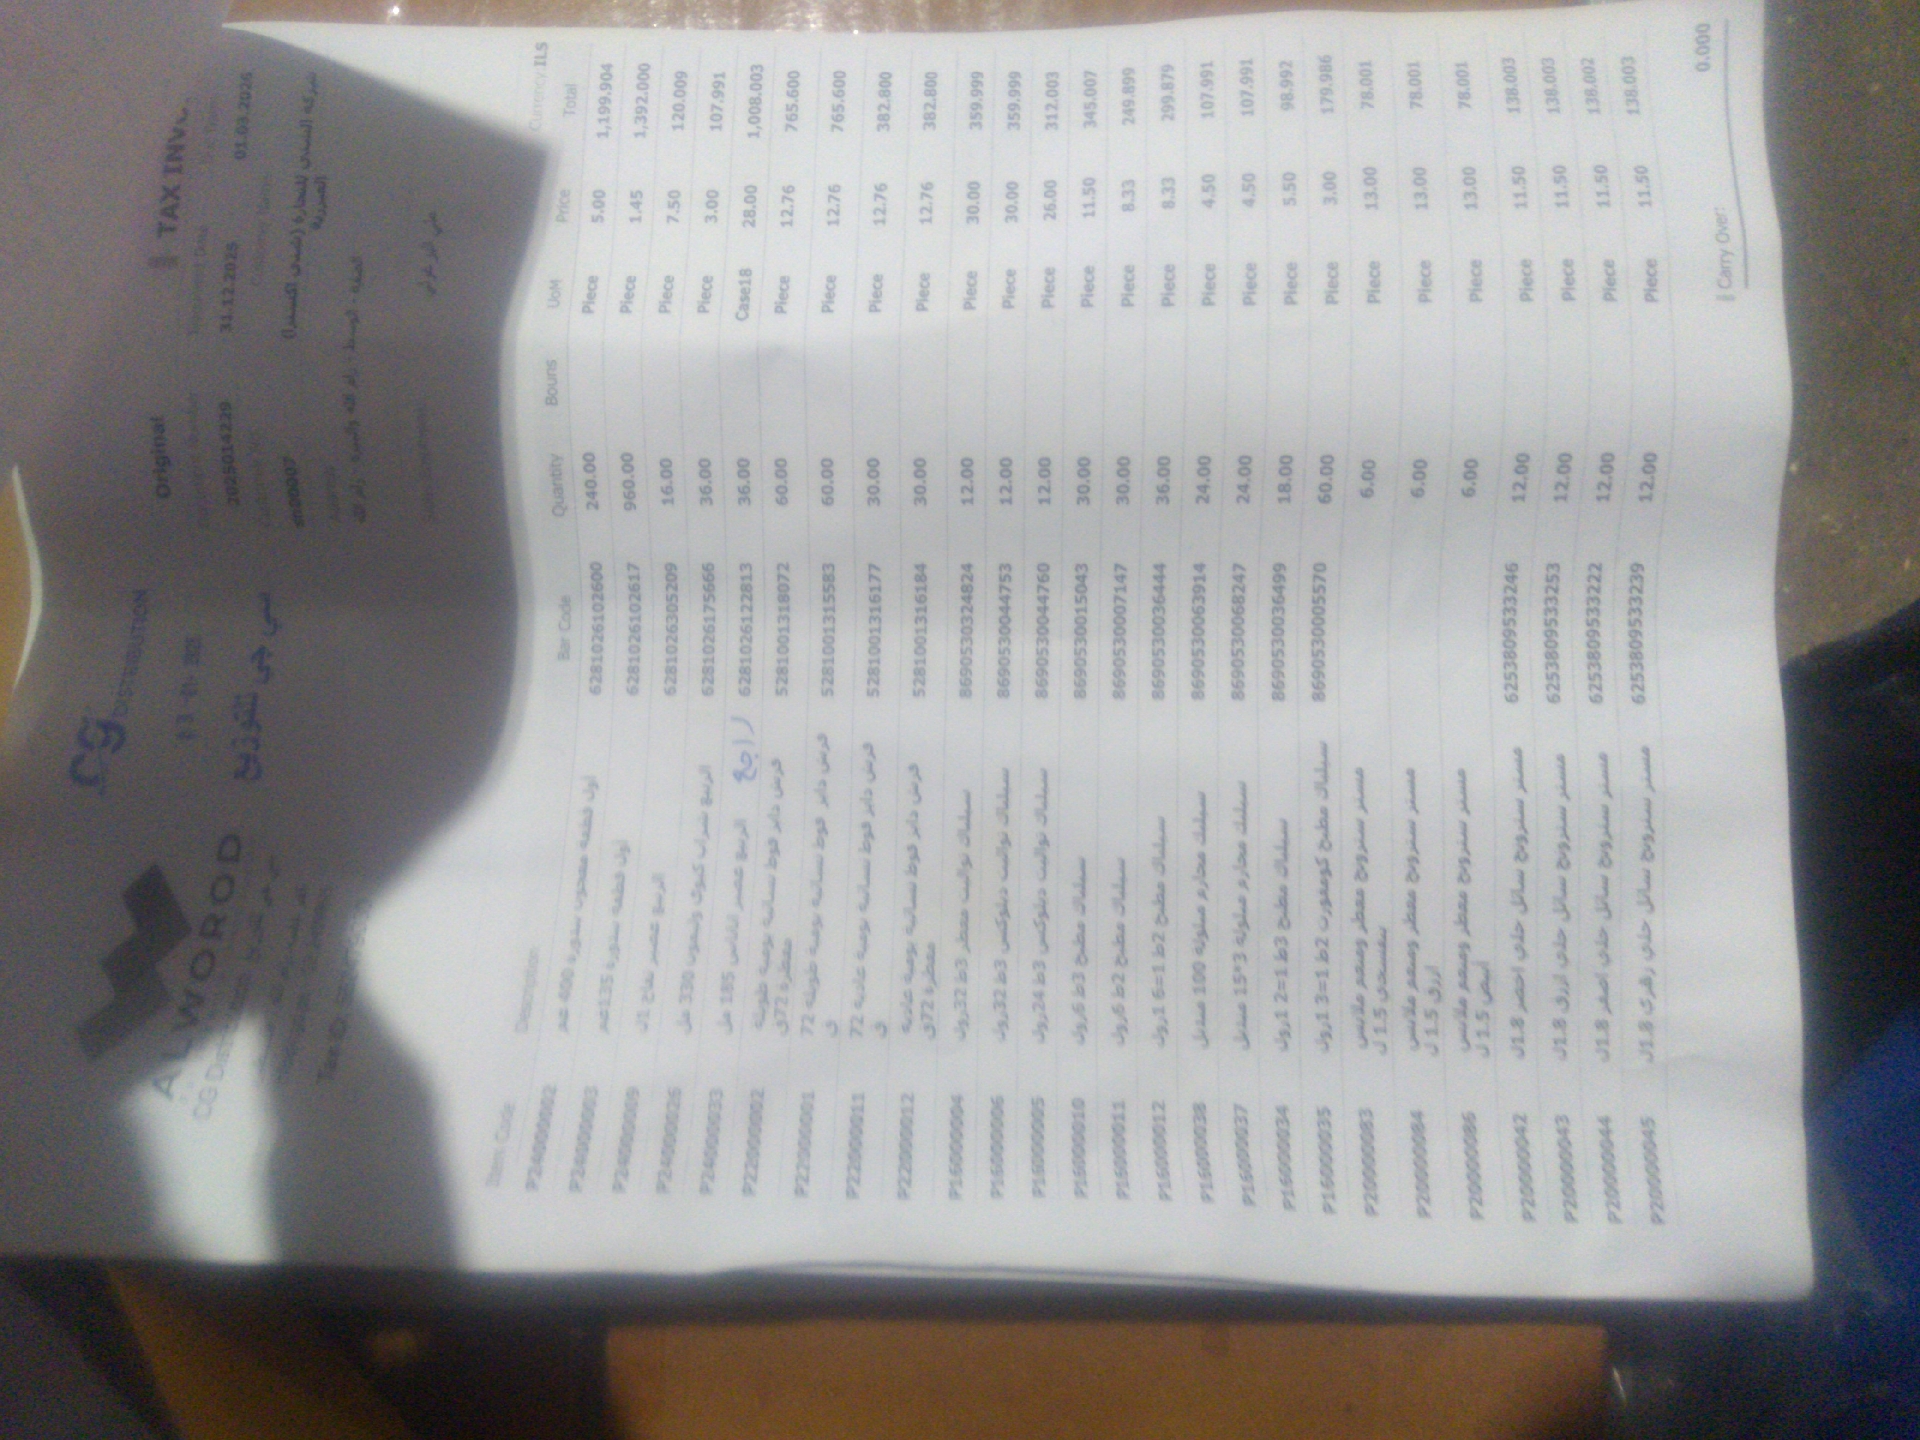 cg DISTRIBUTION
ALWOROD
سي جي للتوزيع
Original
TAX INV
2025014229
31.12.2025
01.03.2026
Currency ILS
Item Code Description Bar Code Quantity Bouns UoM Price Total
P24000002 لوف قطعه معجون بندورة 400 غم 6281026102600 240.00 Piece 5.00 1,199.904
P24000003 لوف قطعه بندورة 135غم 6281026102617 960.00 Piece 1.45 1,392.000
P24000009 الربيع عصير تفاح 1ل 6281026305209 16.00 Piece 7.50 120.009
P24000026 الربيع شراب كيوي وليمون 330 مل 6281026175666 36.00 Piece 3.00 107.991
P24000033 الربيع عصير اناناس 185 مل راجع 6281026122813 36.00 Case18 28.00 1,008.003
P22000002 فرش داير فوط نسائيه يومية طويلة معطرة 72ق 5281001318072 60.00 Piece 12.76 765.600
P22000001 فرش داير فوط نسائيه يومية طويلة 72 ق 5281001315583 60.00 Piece 12.76 765.600
P22000011 فرش داير فوط نسائيه يومية عادية 72 ق 5281001316177 30.00 Piece 12.76 382.800
P22000012 فرش داير فوط نسائيه يومية عادية معطرة 72ق 5281001316184 30.00 Piece 12.76 382.800
P16000004 سيلباك تواليت معطر 3ط 32رول 8690530324824 12.00 Piece 30.00 359.999
P16000006 سيلباك تواليت ديلوكس 3ط 32رول 8690530044753 12.00 Piece 30.00 359.999
P16000005 سيلباك تواليت ديلوكس 3ط 24رول 8690530044760 12.00 Piece 26.00 312.003
P16000010 سيلباك مطبخ 3ط 6رول 8690530015043 30.00 Piece 11.50 345.007
P16000011 سيلباك مطبخ 2ط 6رول 8690530007147 30.00 Piece 8.33 249.899
P16000012 سيلباك مطبخ 2ط 1=6 1رول 8690530036444 36.00 Piece 8.33 299.879
P16000038 سيلباك محارم مبلوله 100 منديل 8690530063914 24.00 Piece 4.50 107.991
P16000037 سيلباك محارم مبلوله 3*15 منديل 8690530068247 24.00 Piece 4.50 107.991
P16000034 سيلباك مطبخ 3ط 1=2 1رول 8690530036499 18.00 Piece 5.50 98.992
P16000035 سيلباك مطبخ كومفورت 2ط 1=3 1رول 8690530005570 60.00 Piece 3.00 179.986
P20000083 مستر سترونج معطر ومنعم ملابس بنفسجي 1.5 ل 6.00 Piece 13.00 78.001
P20000084 مستر سترونج معطر ومنعم ملابس ازرق 1.5 ل 6.00 Piece 13.00 78.001
P20000086 مستر سترونج معطر ومنعم ملابس ابيض 1.5 ل 6.00 Piece 13.00 78.001
P20000042 مستر سترونج سائل جلي اخضر 1.8ل 6253809533246 12.00 Piece 11.50 138.003
P20000043 مستر سترونج سائل جلي ازرق 1.8ل 6253809533253 12.00 Piece 11.50 138.003
P20000044 مستر سترونج سائل جلي اصفر 1.8ل 6253809533222 12.00 Piece 11.50 138.002
P20000045 مستر سترونج سائل جلي زهري 1.8ل 6253809533239 12.00 Piece 11.50 138.003
Carry Over: 0.000